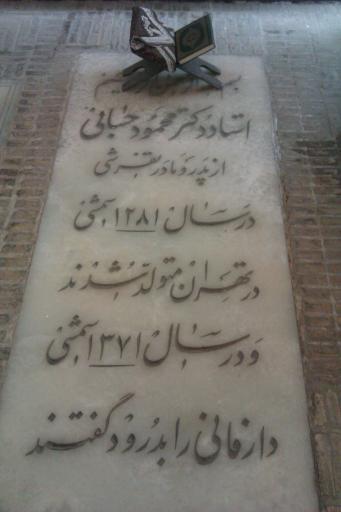 بسم
استاد دکتر محمود حسابی
از پدر و مادر تفرشی
در سال ۱۲۸۱ شمسی
در تهران متولد شدند
و در سال ۱۳۷۱ شمسی
دار فانی را بدرود گفتند